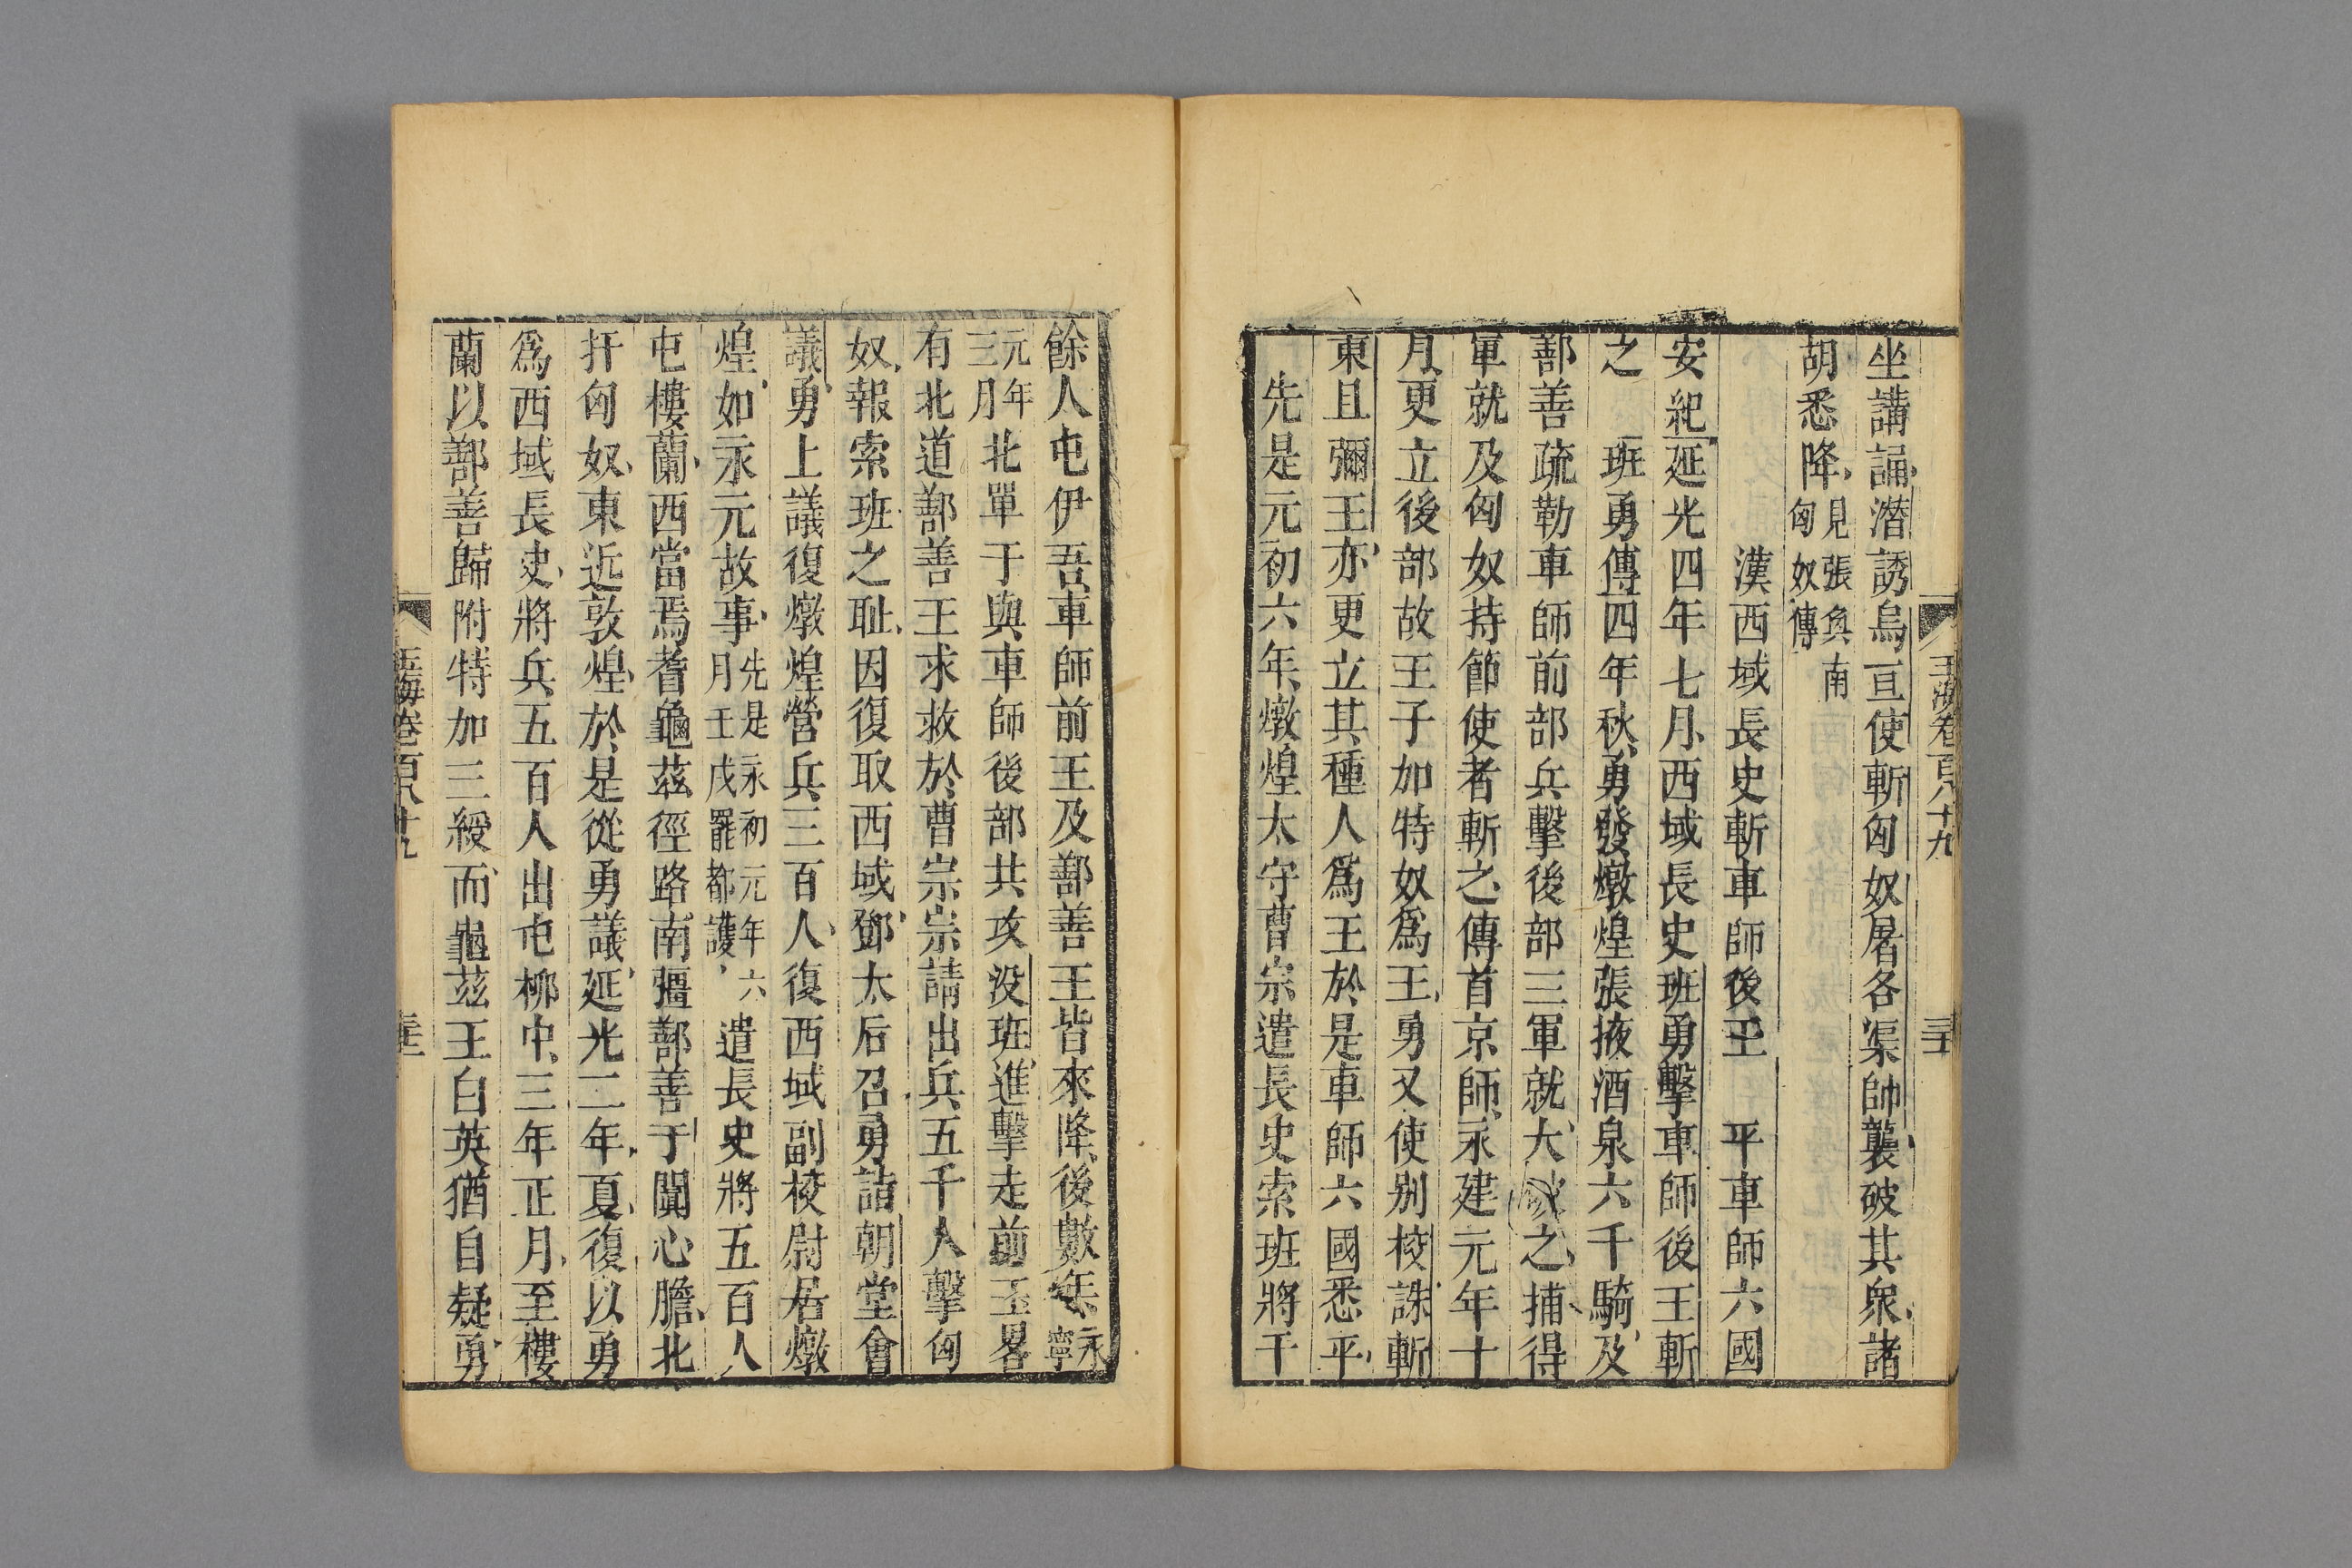 玉海卷百八十九
坐講誦潛誘烏亘使斬匈奴屠各渠帥襲破其衆諸
胡悉降見張奐南匈奴傳
漢西域長史斬車師後王 平車師六國
安紀延光四年七月西域長史班勇擊車師後王斬
之 班勇傳四年秋勇發燉煌張掖酒泉六千騎及
鄯善疏勒車師前部兵擊後部三軍就大破之捕得
軍就及匈奴持節使者斬之傳首京師永建元年十
月更立後部故王子加特奴爲王勇又使别校誅斬
東且彌王亦更立其種人爲王於是車師六國悉平
先是元初六年燉煌太守曹宗遣長史索班將千
餘人屯伊吾車師前王及鄯善王皆來降後數年永寧
元年三月北單于與車師後部共攻没班進擊走前王畧
有北道鄯善王求救於曹宗宗請出兵五千人擊匈
奴報索班之耻因復取西域鄧太后召勇詣朝堂會
議勇上議復燉煌營兵三百人復西域副校尉居燉
煌如永元故事先是永初元年六月壬戌罷都護遣長史將五百人
屯樓蘭西當焉耆龜茲徑路南彊鄯善于闐心膽北
扞匈奴東近敦煌於是從勇議延光二年夏復以勇
爲西域長史將兵五百人出屯柳中三年正月至樓
蘭以鄯善歸附特加三綬而龜茲王白英猶自疑勇
玉海卷百八十九